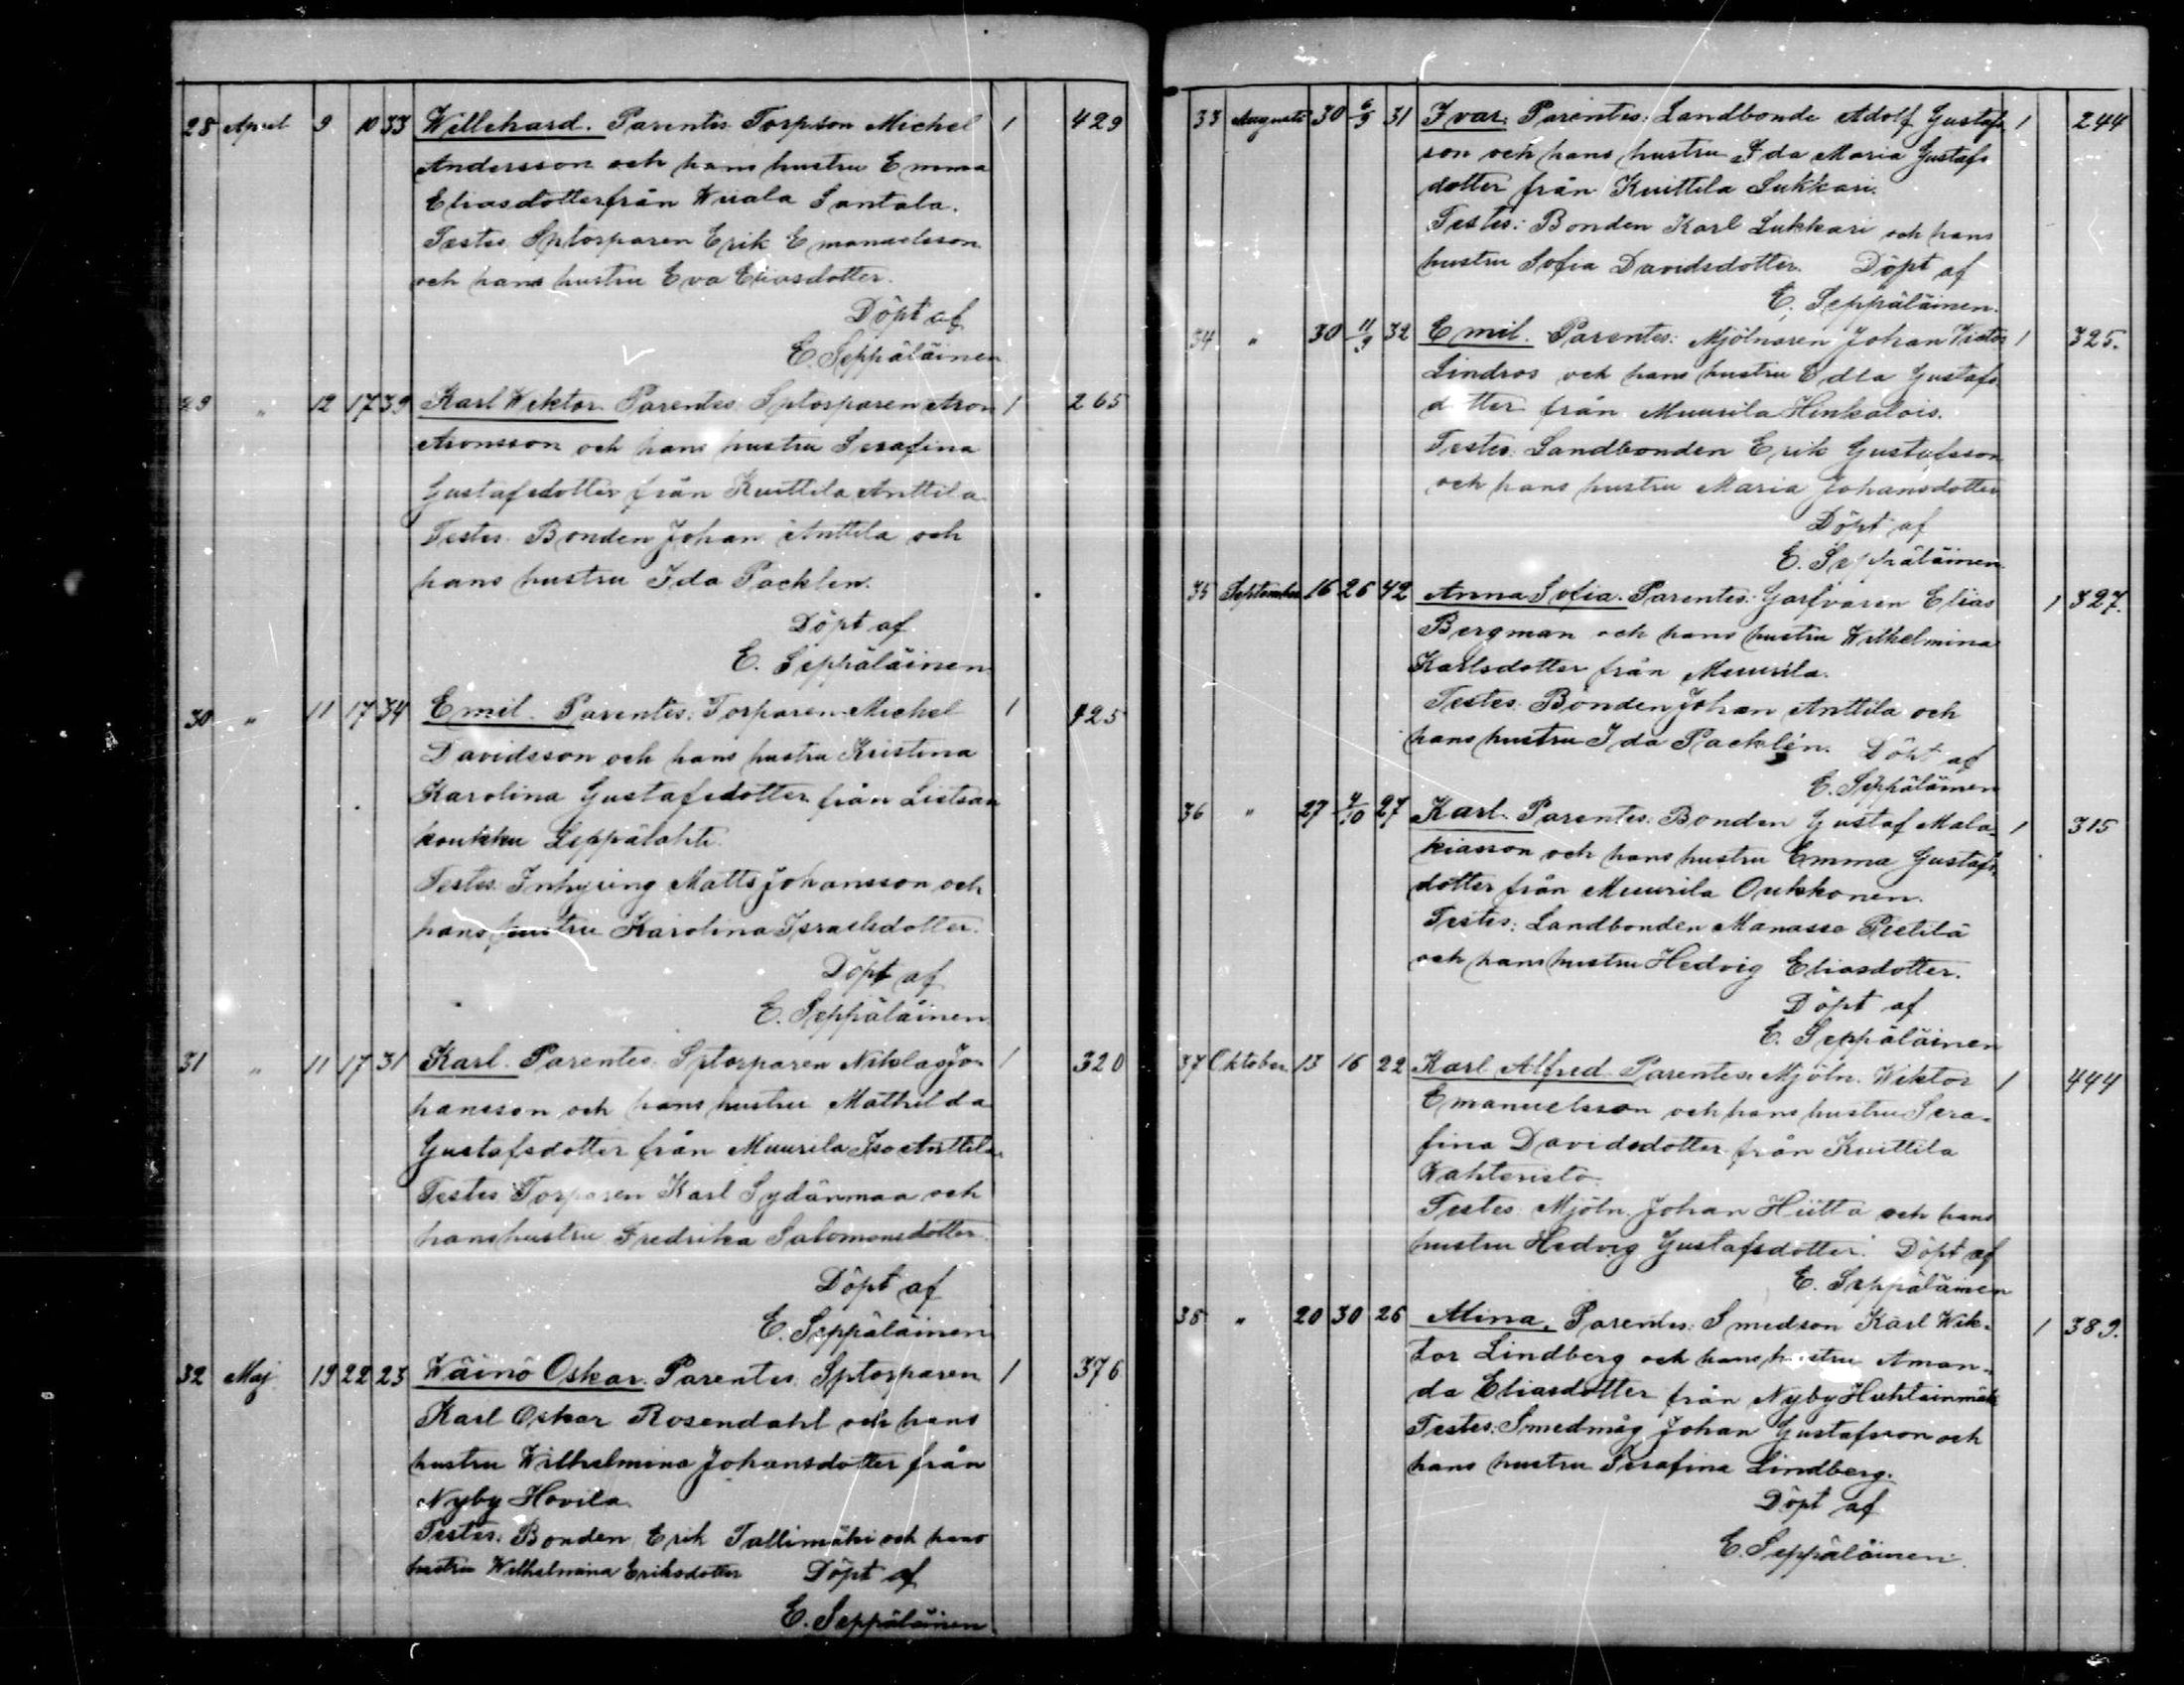 28 April 9 10 33 Willehard. Parentes: Torpson Michel 1 429
Andersson och hans hustru Emma
Eliasdotter från Wiiala Santala.
Testes: Sptorparen Erik Emanuelsson
och hans hustru Eva Eliasdotter.
Döpt af
E. Seppäläinen
29 " 12 17 39 Karl Wiktor. Parentes: Sptorparen Aron 1 265
Aronsson och hans hustru Serafina
Gustafsdotter från Kuittila Anttila
Testes: Bonden Johan Anttila och
hans hustru Ida Packlen.
Döpt af
E. Seppäläinen
30 " 11 17 34 Emil. Parentes: Torparen Michel 1 425
Davidsson och hans hustru Kristina
Karolina Gustafsdotter från Lietsan
koukku Leppälahti.
Testes: Inhysing Matts Johansson och
hans hustru Karolina Israelsdotter.
Döpt af
E. Seppäläinen
31 " 11 17 31 Karl. Parentes: Sptorparen Nikolas Jo- 1 320
hansson och hans hustru Mathilda
Gustafsdotter från Muurila Iso Anttila.
Testes: Torparen Karl Sydänmaa och
hans hustru Fredrika Salomonsdotter.
Döpt af
E. Seppäläinen
32 Maj 19 22 23 Wäinö Oskar. Parentes: Sptorparen 1 376
Karl Oskar Rosendahl och hans
hustru Wilhelmina Johansdotter från
Nyby Hovila.
Testes: Bonden Erik Tallimäki och hans
hustru Wilhelmina Eriksdotter Döpt af
E. Seppäläinen
33 Augusti 30 6/9 31 Ivar. Parentes: Landbonde Adolf Gustafs 1 244
son och hans hustru Ida Maria Gustafs
dotter från Kuittila Lukkari.
Testes: Bonden Karl Lukkari och hans
hustru Sofia Davidsdotter. Döpt af
E. Seppäläinen.
34 " 30 11/9 32 Emil. Parentes: Mjölnaren Johan Victor 1 325.
Lindros och hans hustru Edla Gustafs
dotter från Muurila Hinkalois.
Testes: Landbonden Erik Gustafsson
och hans hustru Maria Johansdotter
Döpt af
E. Seppäläinen
35 September 16 26 42 Anna Sofia. Parentes: Garfvaren Elias 1 327.
Bergman och hans hustru Wilhelmina
Karlsdotter från Muurila.
Testes: Bonden Johan Anttila och
hans hustru Ida Packlén. Döpt af
E. Seppäläinen
36 " 27 4/10 27 Karl. Parentes: Bonden Gustaf Mala- 1 315
kiasson och hans hustru Emma Gustafs
dotter från Muurila Oukkonen.
Testes: Landbonden Manasse Pietilä
och hans hustru Hedvig Eliasdotter.
Döpt af
E. Seppäläinen
37 Oktober 13 16 22 Karl Alfred. Parentes: Mjöln. Wiktor 1 444
Emanuelsson och hans hustru Sera-
fina Davidsdotter från Kuittila
Wahteristo.
Testes: Mjöln. Johan Hiitta och hans
hustru Hedvig Gustafsdotter. Döpt af
E. Seppäläinen
38 " 20 30 26 Alina. Parentes: Smedson Karl Wik- 1 389.
tor Lindberg och hans hustru Aman-
da Eliasdotter från Nyby Huhtainmäki
Testes: Smedmåg Johan Gustafsson och
hans hustru Serafina Lindberg.
Döpt af
E. Seppäläinen.